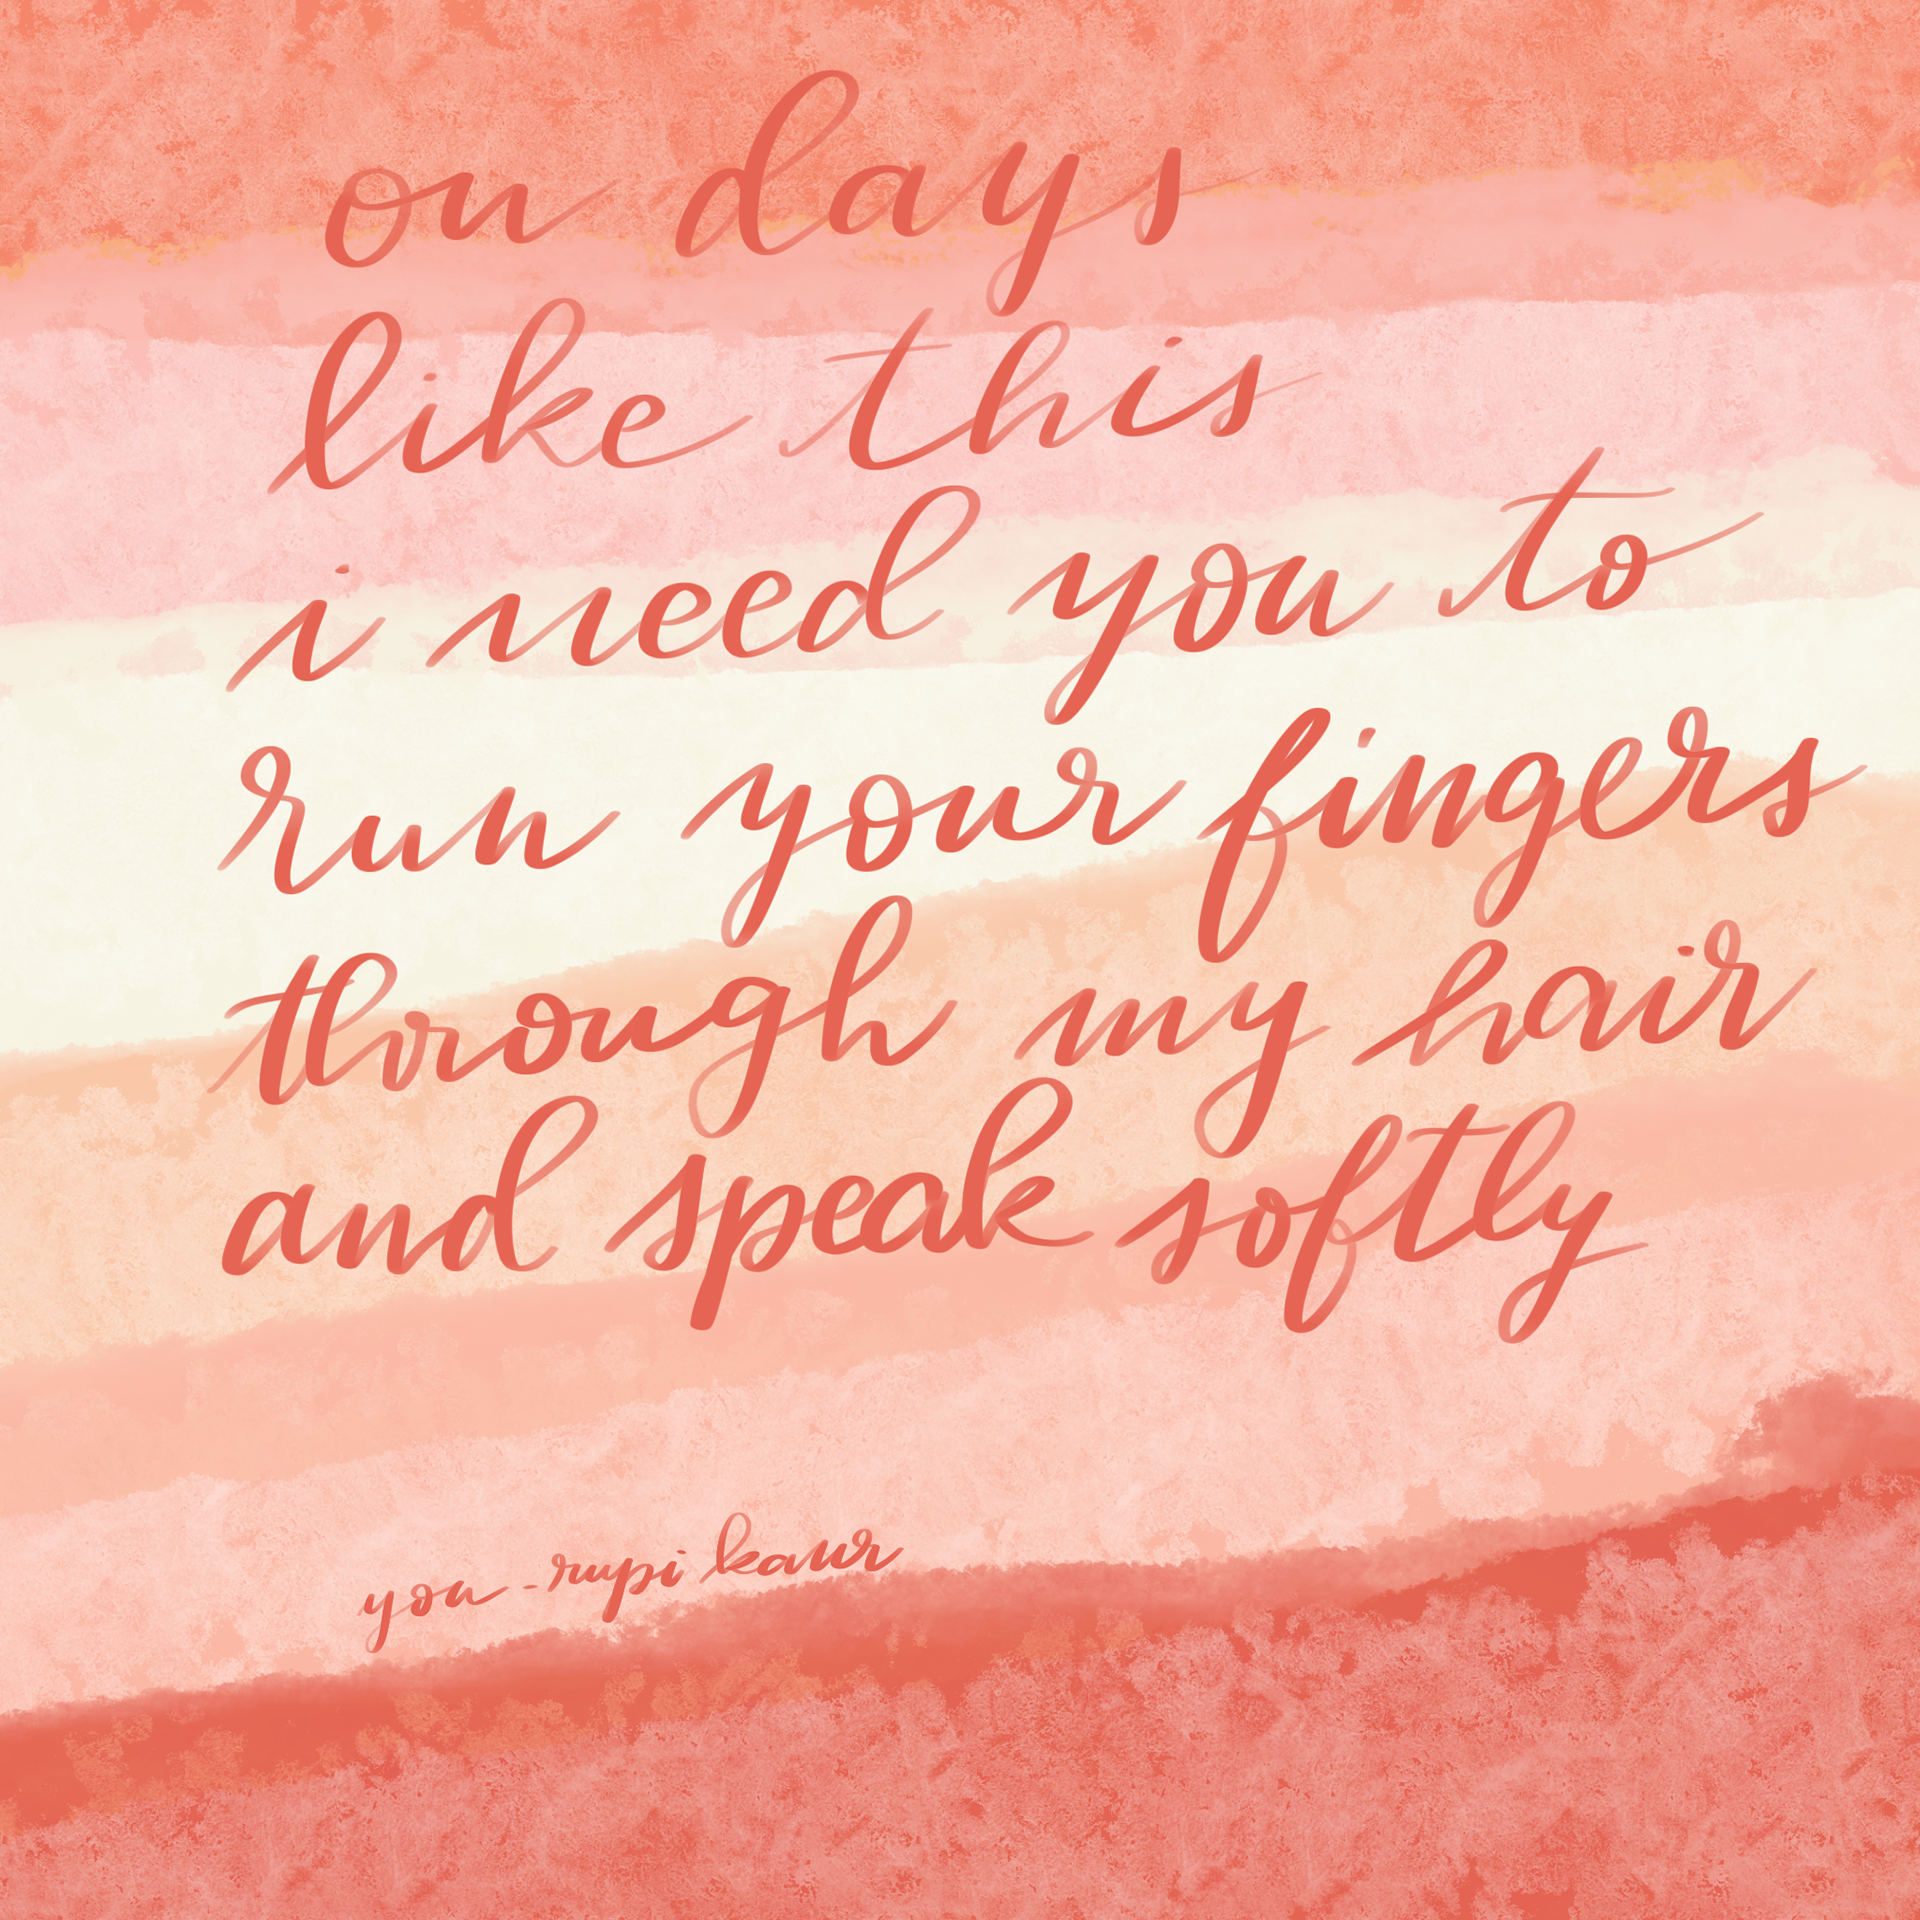 on days
like this
i need you to
run your fingers
through my hair
and speak softly
you - rupi kaur